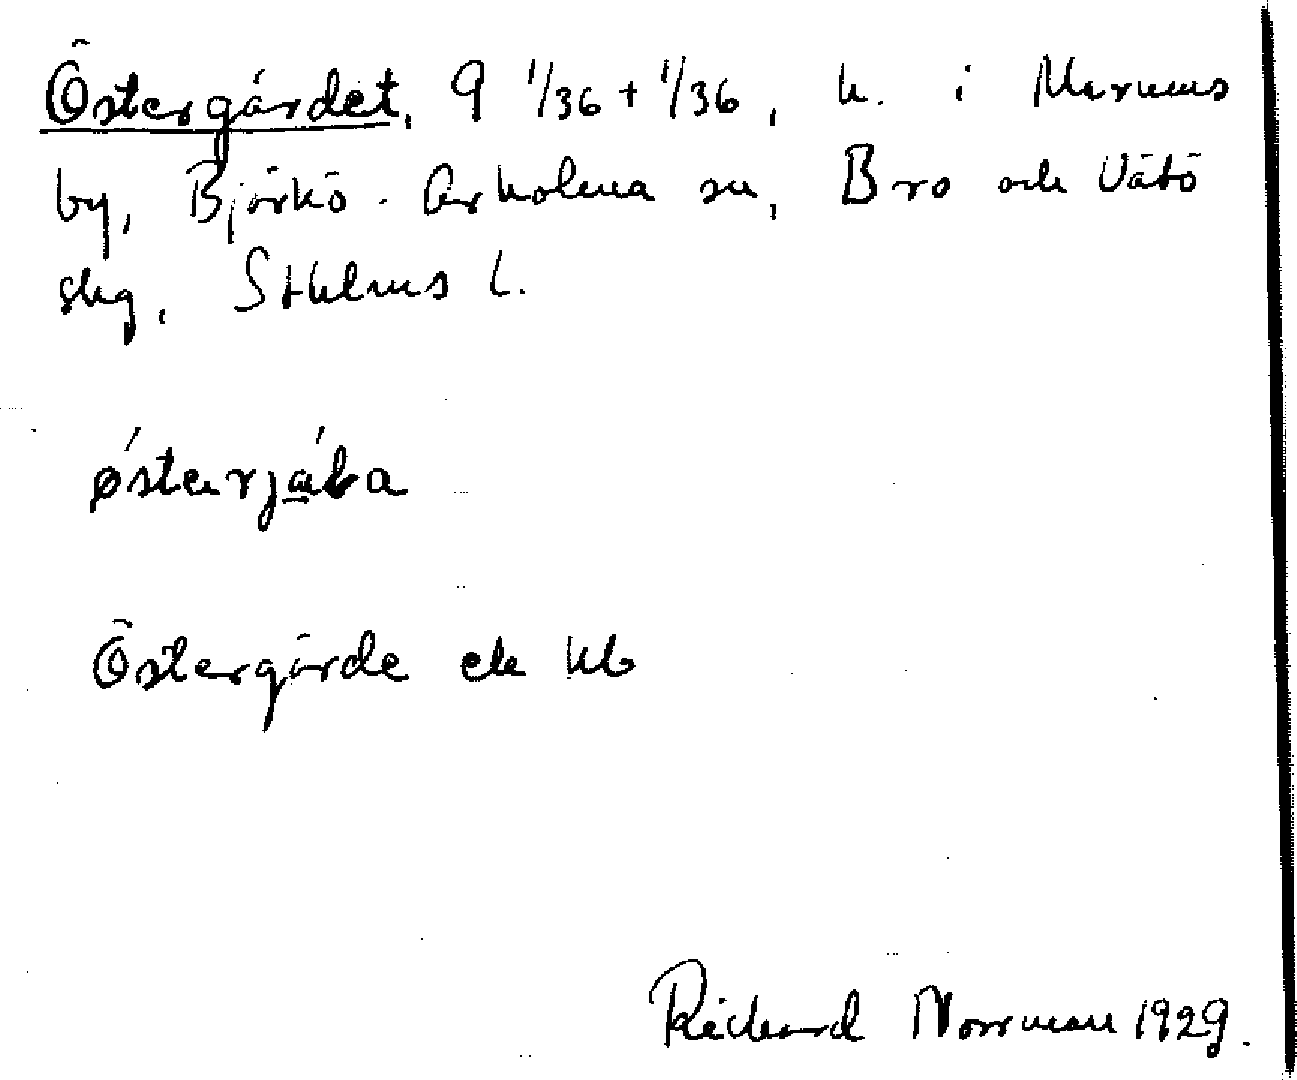 Östergårdet, 9 1/36 + 1/36, h. i Marums
by, Björkö-Arholma sn, Bro och Vätö
skg, Sthlms l.
Östergärde ek kb
Richard Norrman 1929.